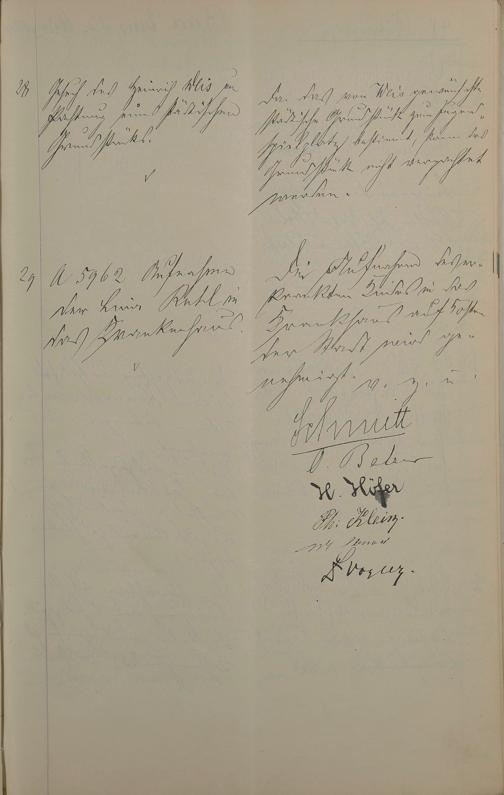 28 Gesuch des Heinrich Weis um
Pachtung eines städtischen
Grundstücks.
Da das von Weis gewünschte
städtische Grundstück zum Jugend-
spielplatz bestimmt, kann das
Grundstück nicht verpachtet
werden.
29 A 5962 Aufnahme
der Lina in
das Krankenhaus.
Die Aufnahme der er-
krankten in das
Krankhaus auf Kosten
der Stadt wird ge-
nehmigt. v. g. u.
Schmitt
H. Höfer
Ph. Klein.